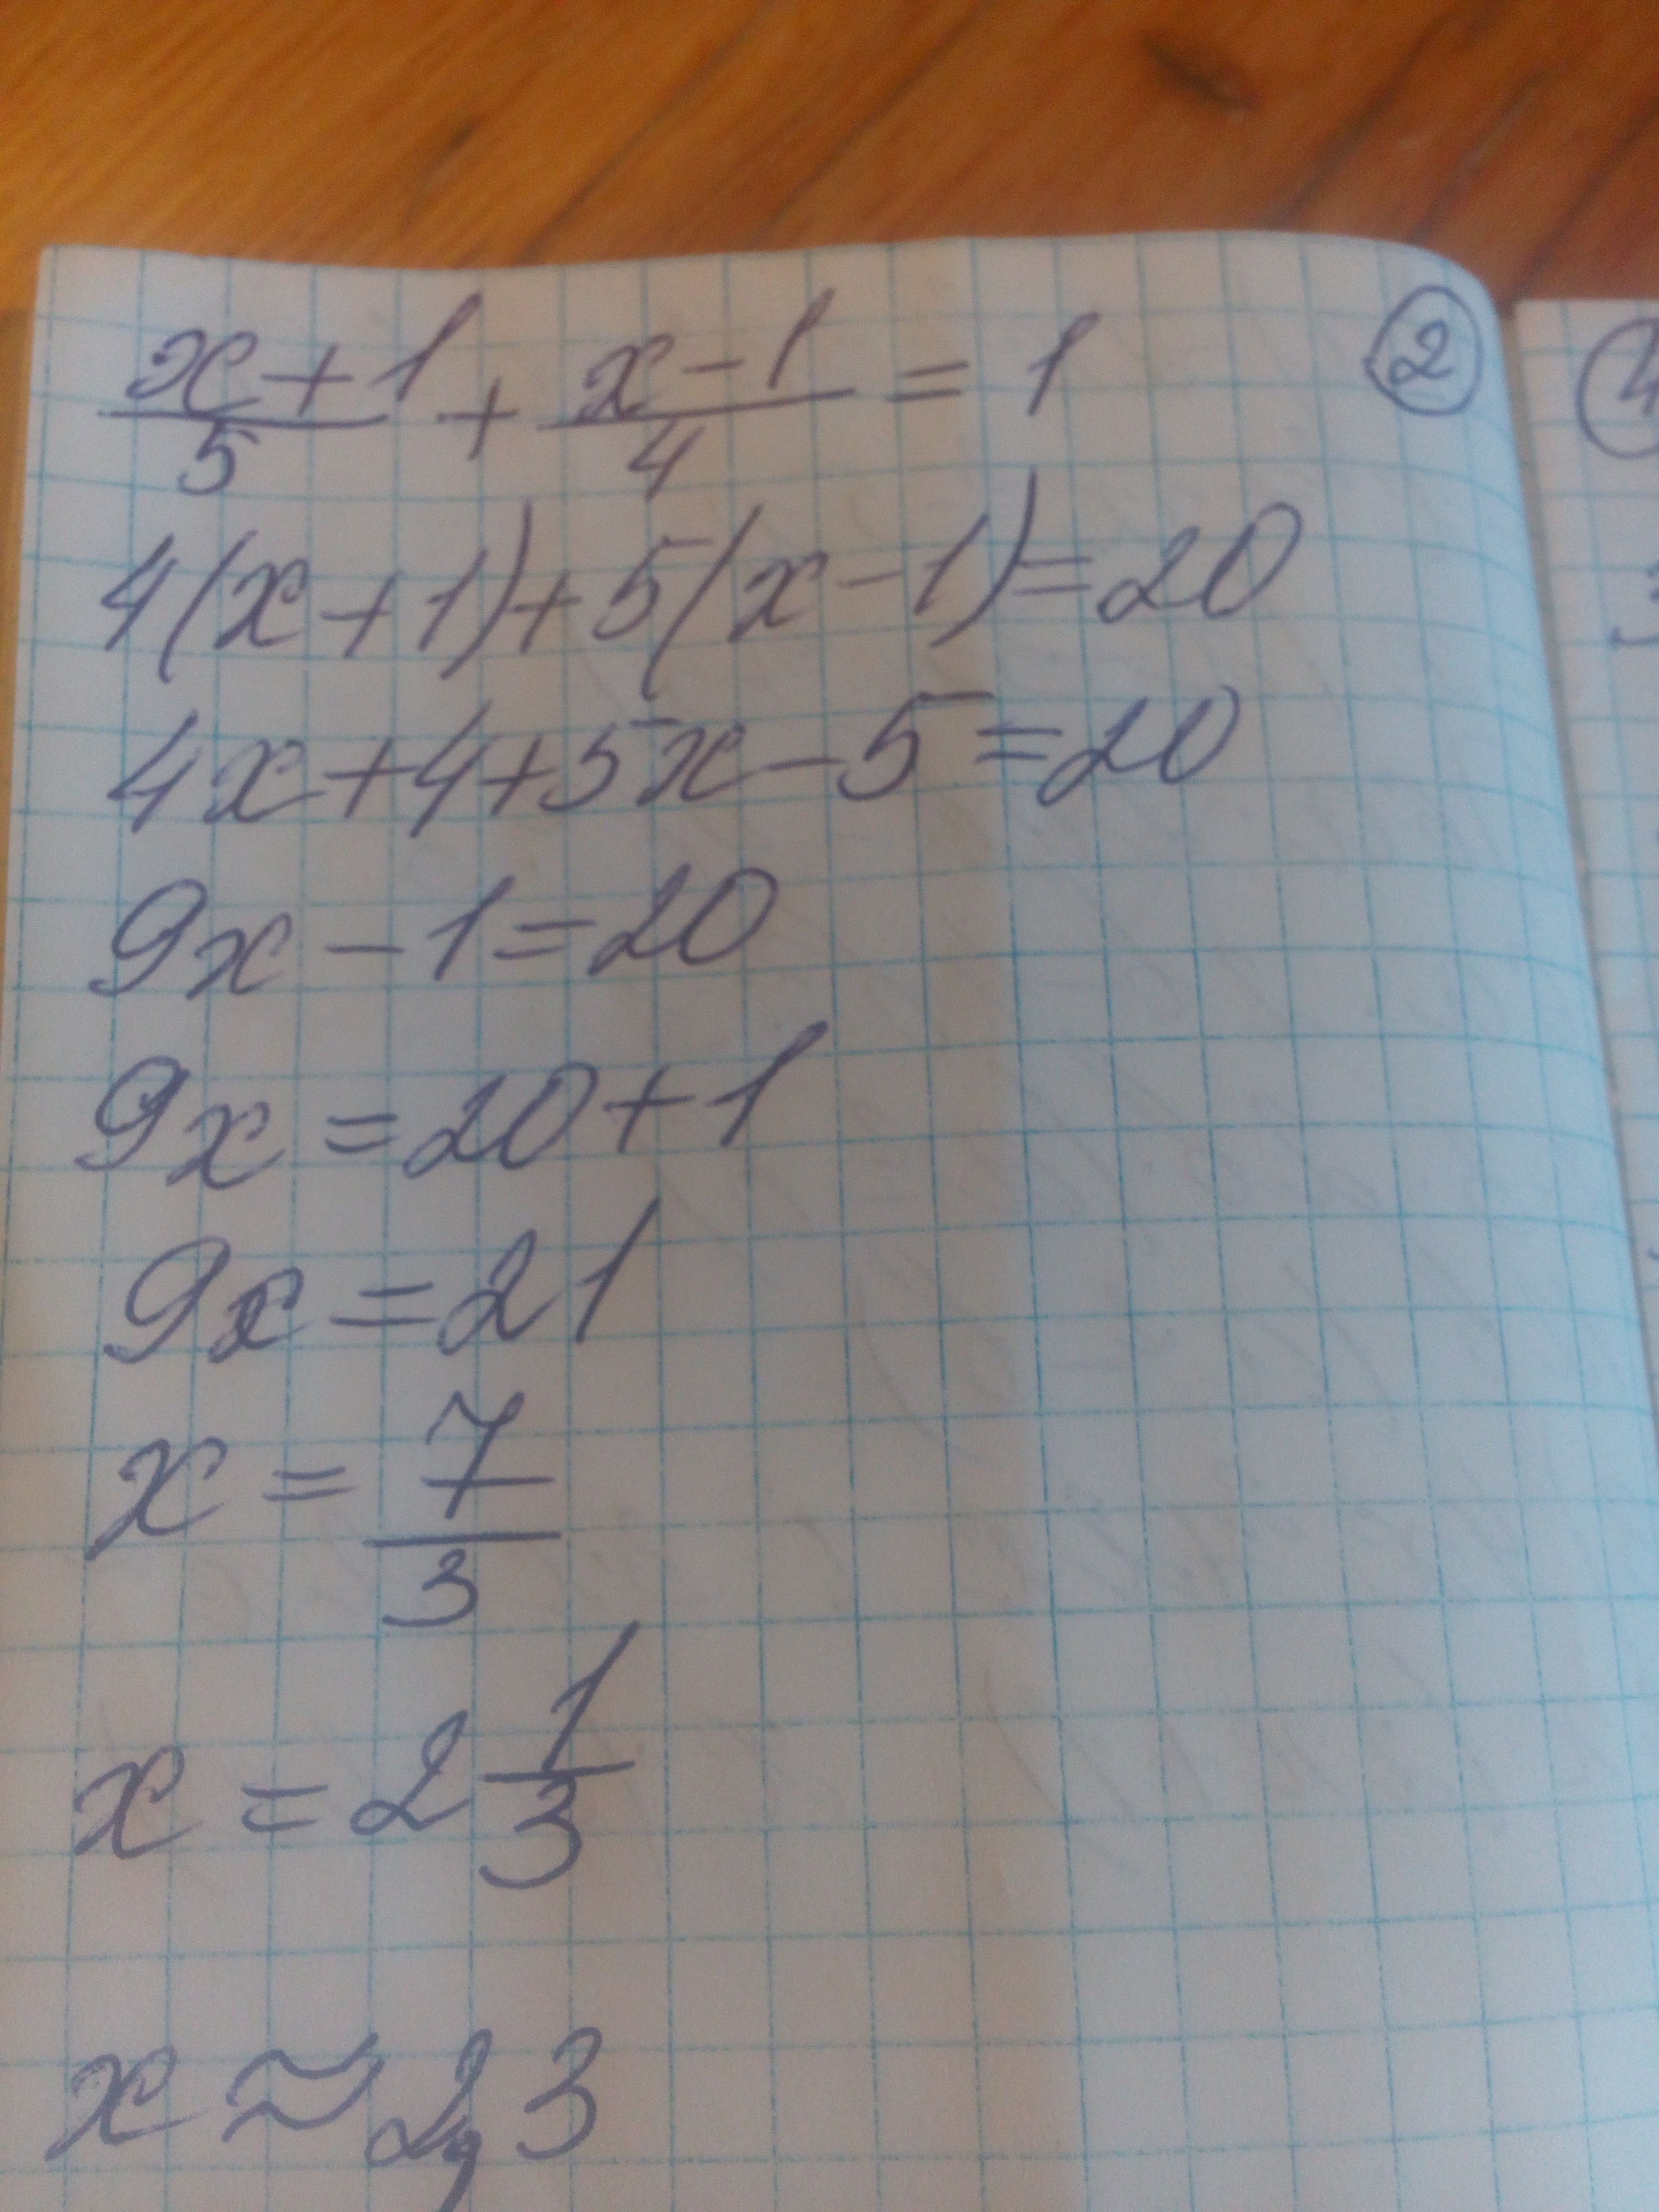 (x+1)/5 + (x-1)/4 = 1 ②
4(x+1)+5(x-1)=20
4x+4+5x-5=20
9x-1=20
9x=20+1
9x=21
x=7/3
x=2 1/3
x≈2,3